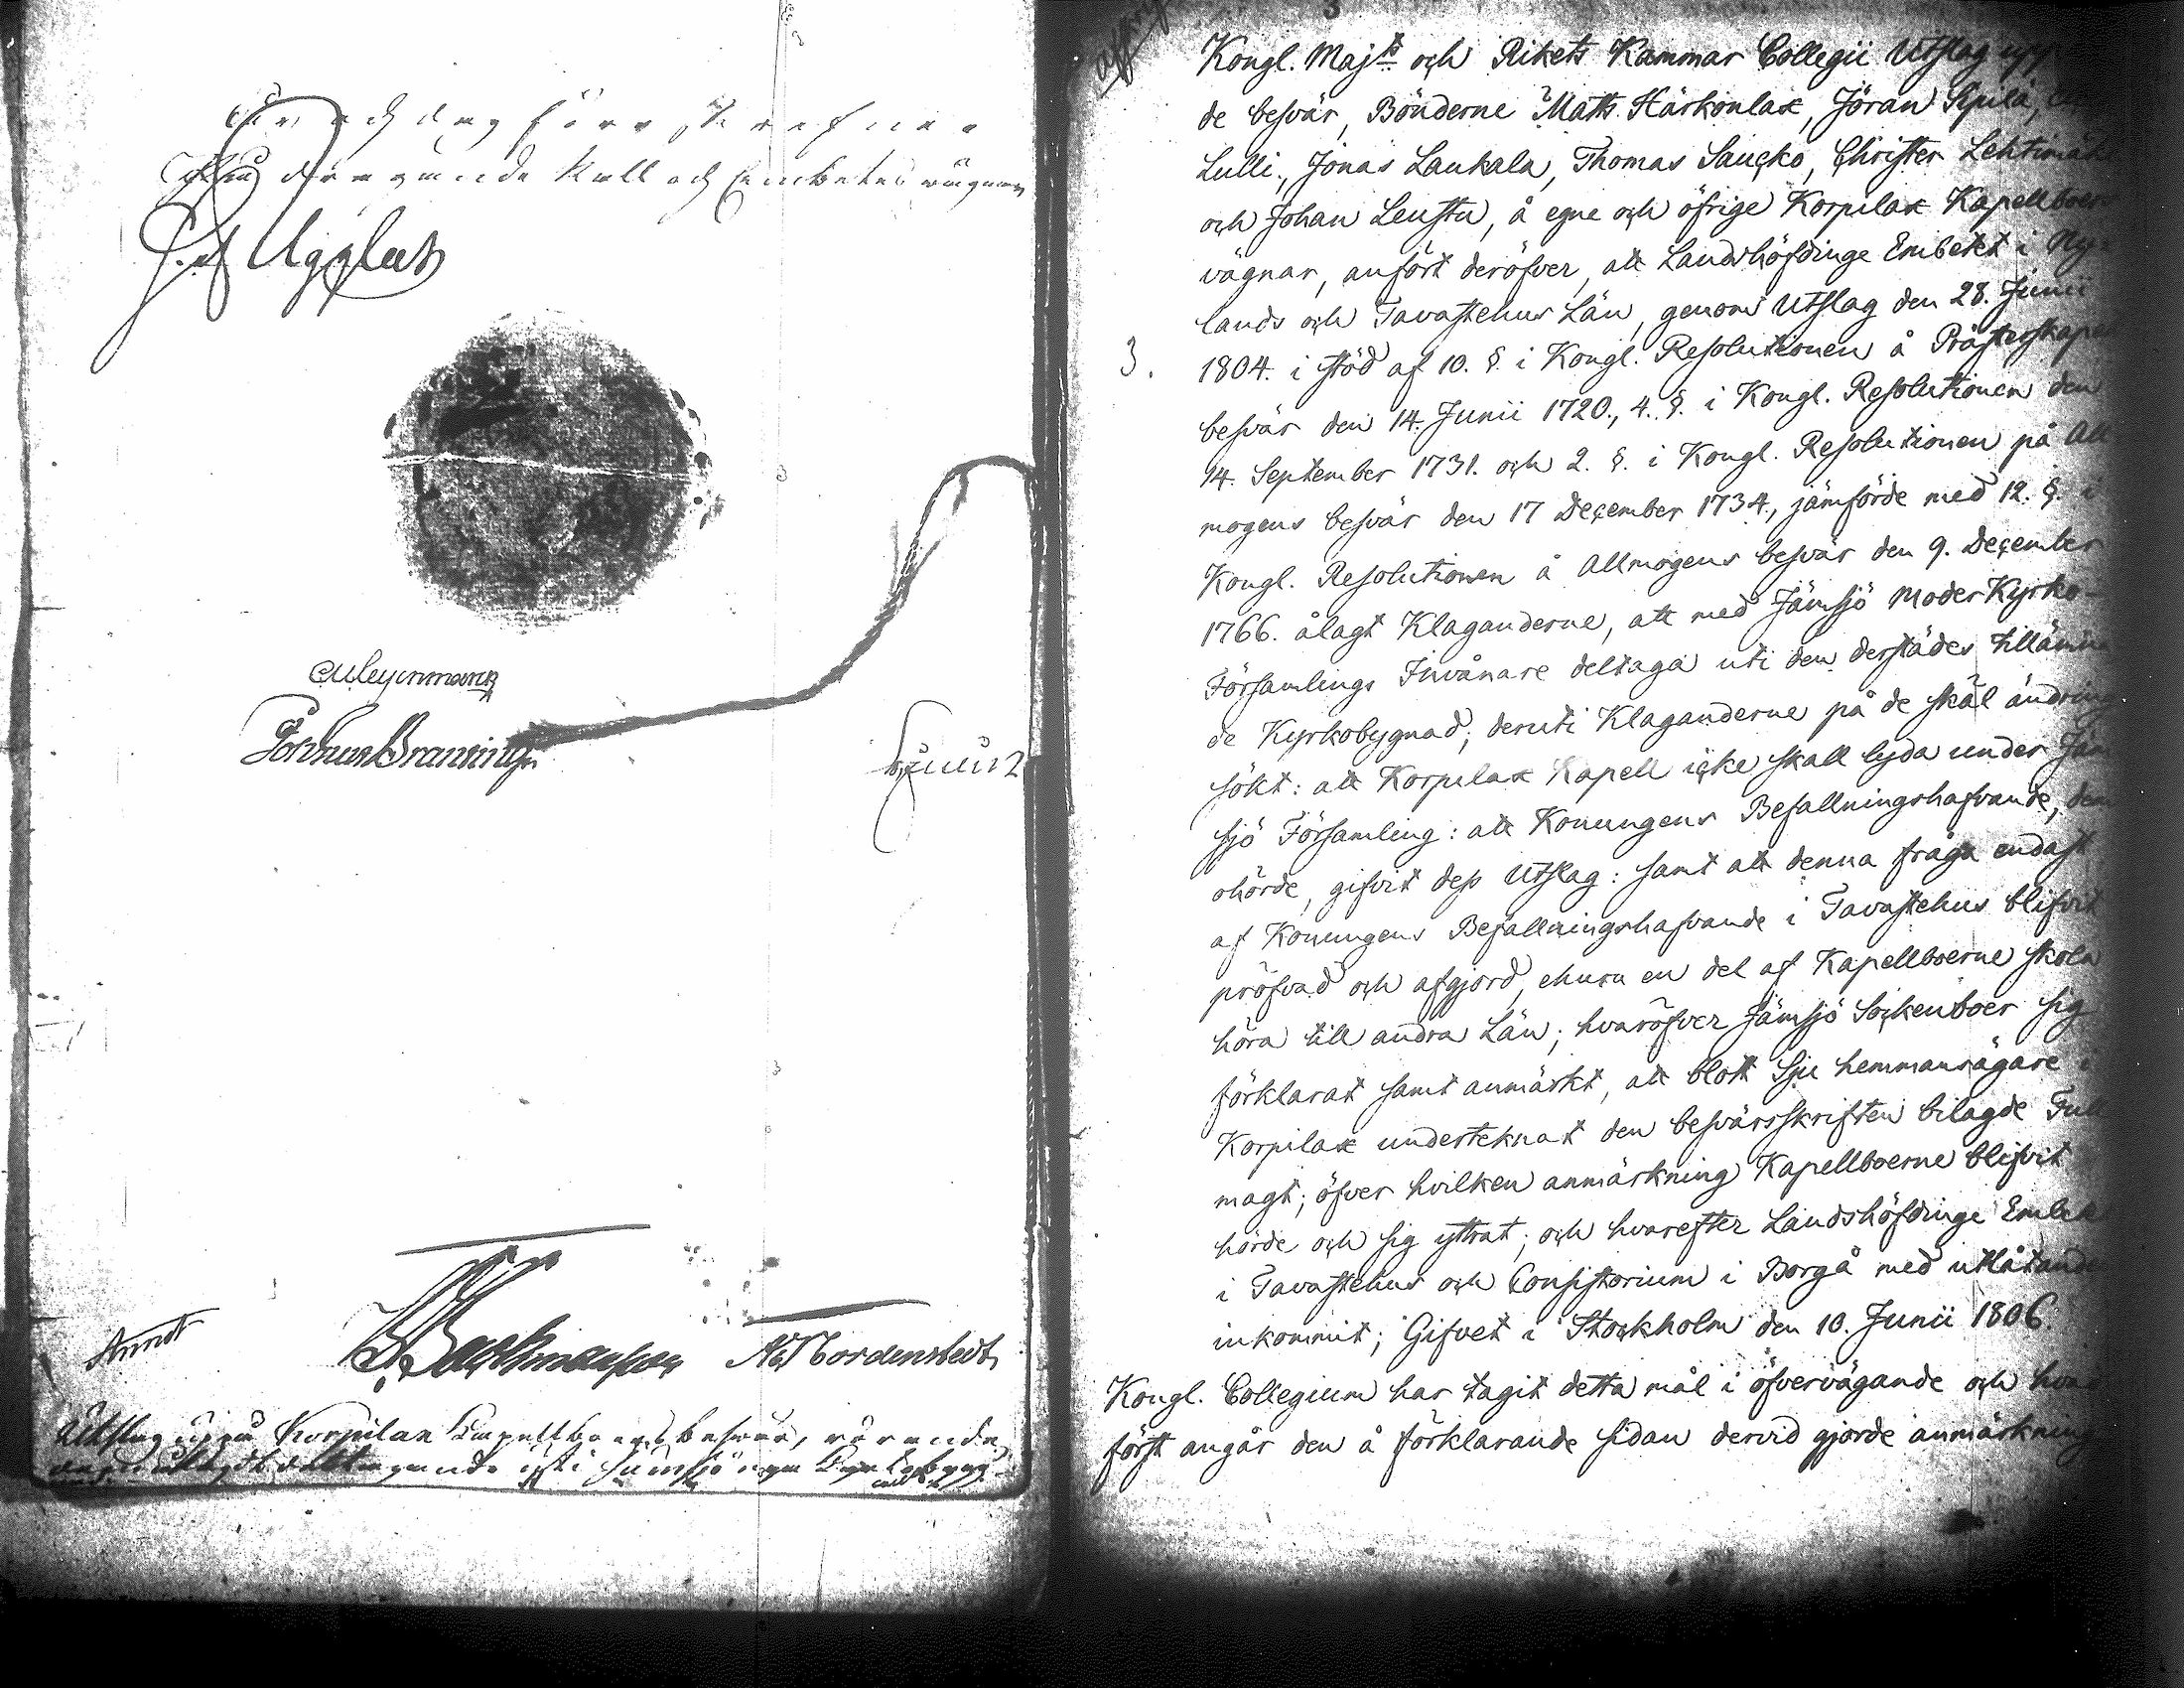 år och dag förr skrefne.
Embetes vägnar
Ugglas
Johan Branting
Nordenstedt
Utslag uppå Korpilax Kapellboers besvär, rörande
uti Jämsjö nya Kyrkobygg-
nad
Kongl. Majts och Rikets Kammar Collegii Utslag upp
de besvär, Bönderne Matts Härkonlax, Jöran Sipilä,
Lulli, Jonas Laukala, Thomas Saucko, Christer Lehtimäki
och Johan Leustu, å egne och öfrige Korpilax Kapellboers
vägnar, anfört deröfver, att Landshöfdinge Embetet i Ny-
lands och Tavastehus Län, genom Utslag den 28. Junii
3. 1804. i stöd af 10. §. i Kongl. Resolutionen å Prästerskapets
besvär den 14. Junii 1720., 4. §. i Kongl. Resolutionen den
14. September 1731. och 2. §. i Kongl. Resolutionen på All
mogens besvär den 17 December 1734., jämförde med 12. §. i
Kongl. Resolutionen å Allmogens besvär den 9. December
1766. ålagt Klaganderne, att med Jämsjö Moder Kyrko-
Församlings Invånare deltaga uti den derstädes tillämna
de Kyrkobygnad; deruti Klaganderne på de skäl ändring
sökt: att Korpilax Kapell icke skall lyda under Jäm
sjö Församling: att Konungens Befallningshafvande, dem
ohörde, gifvit dess Utslag: samt att denna fråga endast
af Konungens Befallningshafvande i Tavastehus blifvit
pröfvad och afgjord, ehuru en del af Kapellboerne skola
höra till andra Län; hvaröfver Jämsjö Sockenboer sig
förklarat samt anmärkt, att blott sju hemmansägare i
Korpilax underteknat den besvärsskriften bilagde Full
magt; öfver hvilken anmärkning Kapellboerne blifvit
hörde och sig yttrat; och hvarefter Landshöfdinge Embetet
i Tavastehus och Consistorium i Borgå med utlåtande
inkommit; Gifvet i Stockholm den 10. Junii 1806.
Kongl. Collegium har tagit detta mål i öfvervägande och hvad
först angår den å förklarande sidan dervid gjorde anmärkning